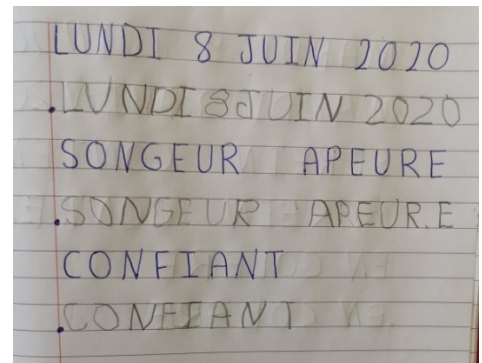 LUNDI 8 JUIN 2020
.LUNDI 8 JUIN 2020
SONGEUR APEURE
.SONGEUR APEURE
CONFIANT
.CONFIANT